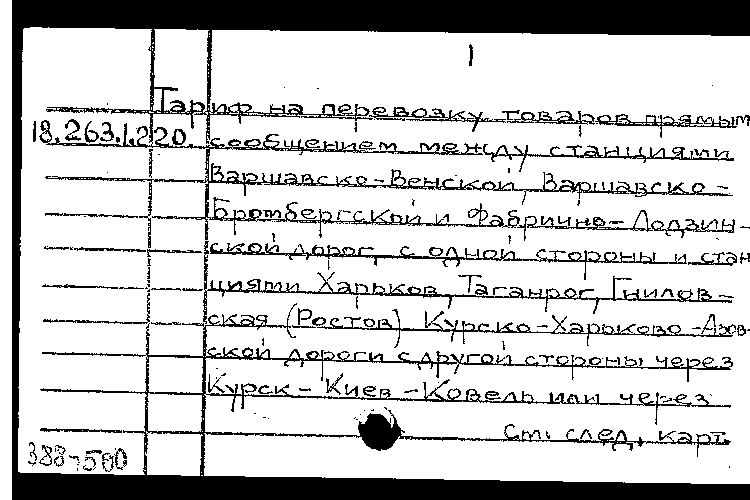 1
Тариф на перевозку товаров прямым
18.263.1.220. сообщением между станциями
Варшавско-Венской, Варшавско-
Бромбергской и Фабрично-Лодзин-
ской дорог, с одной стороны и стан
циями Харьков, Таганрог, Гнилов-
ская (Ростов) Курско-Харьково-Азов-
ской дороги с другой стороны через
Курск-Киев-Ковель или через
См. след. карт.
388-500